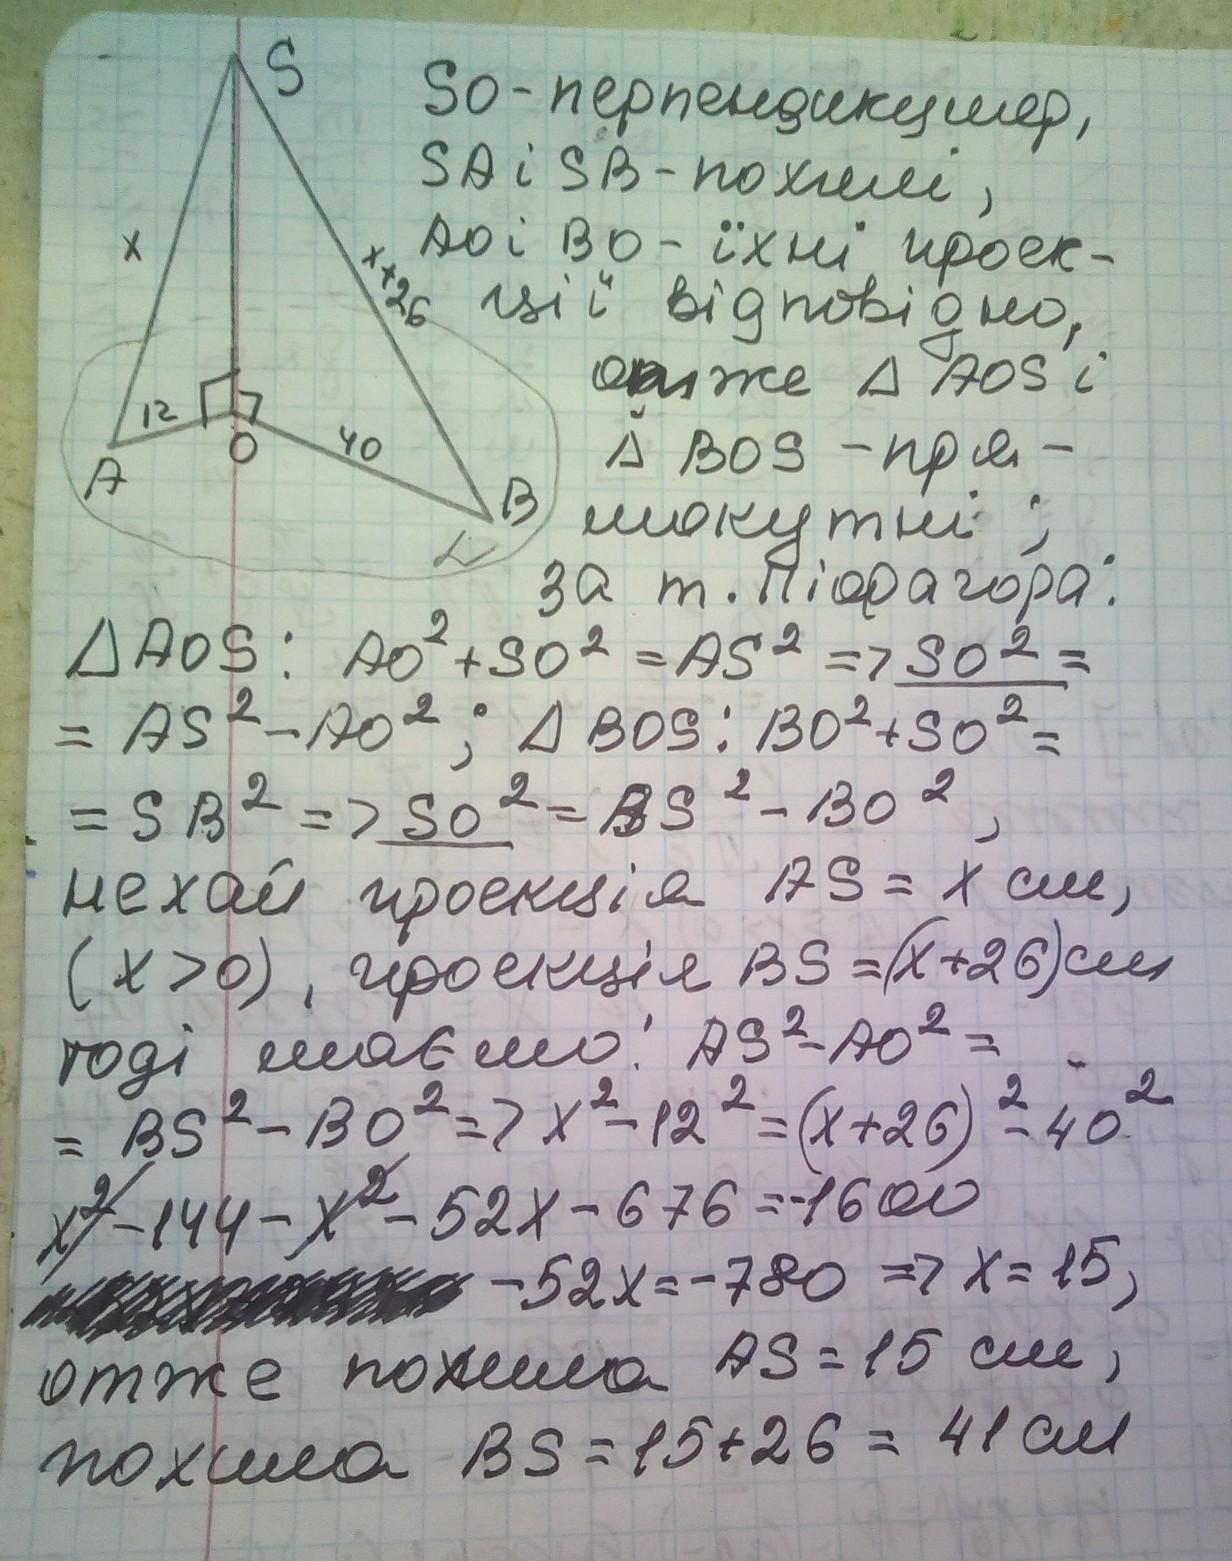 S
SO - перпендикуляр,
SA і SB - похилі,
x
x+26
AO і BO - їхні проек-
ції відповідно,
отже Δ AOS і
12
40
O
A
B
L
Δ BOS - пря-
мокутні;
За т. Піфагора:
ΔAOS: AO² + SO² = AS² => SO² =
= AS² - AO²; Δ BOS: BO² + SO² =
= SB² => SO² = BS² - BO²,
нехай проекція AS = x см,
(x>0), проекція BS = (x+26) см
тоді маємо: AS² - AO² =
= BS² - BO² => x² - 12² = (x+26)² - 40²
x² - 144 - x² - 52x - 676 = -1600
-52x = -780 => x = 15,
отже похила AS = 15 см,
похила BS = 15 + 26 = 41 см